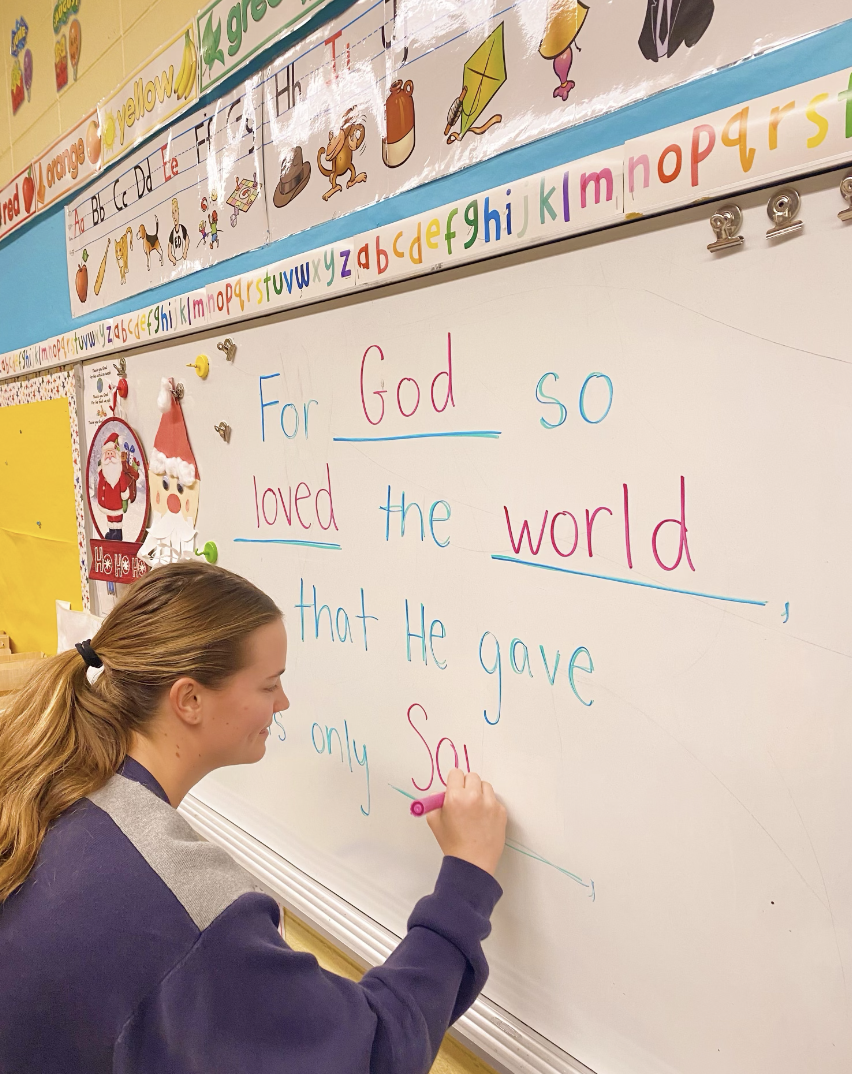 green
yellow
orange
red
Aa Bb Cc Dd Ee Ff Gg Hh Ii
abcdefghijklmnopqrstuvwxyzabcdefghijklmnopqrstuvwxyzabcdefghijklmnopqrs
For God so
loved the world,
that He gave
only So
HO HO HO